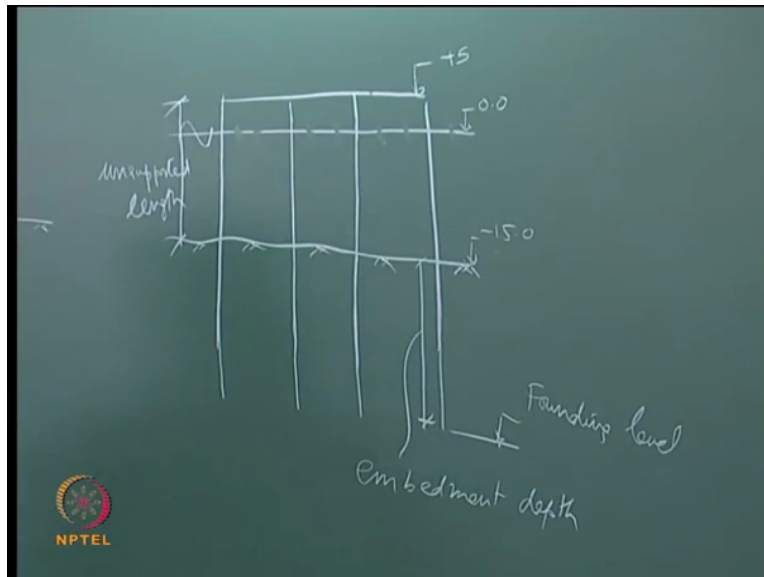 +5
0.0
unsupported
length
-15.0
Founding level
embedment depth
NPTEL